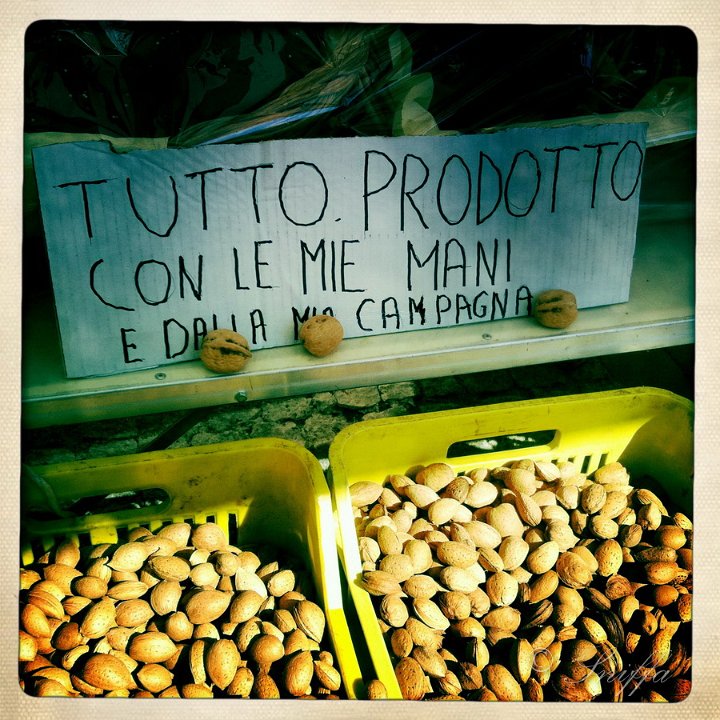 TUTTO. PRODOTTO
CON LE MIE MANI
E DALLA MIA CAMPAGNA
© Snuffa